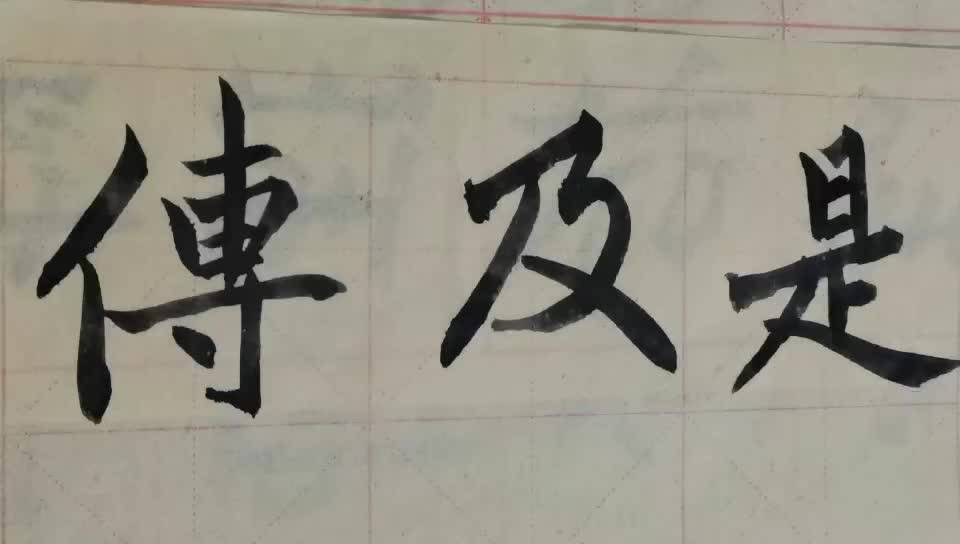 傳及是